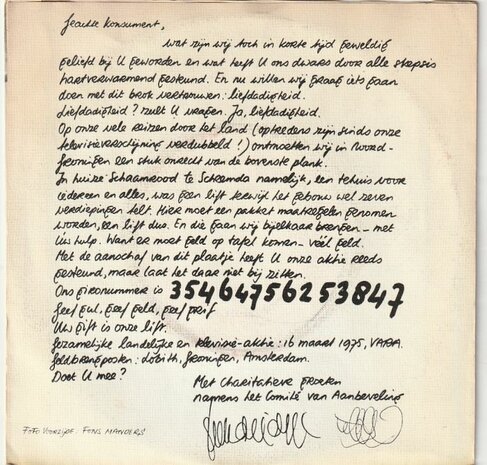 Geachte Konsument,
wat zijn wij toch in korte tijd geweldig
geliefd bij U geworden en wat heeft U ons dwars door alle skepsis
hartverwarmend gesteund. En nu willen wij graag iets gaan
doen met dit brok vertrouwen: liefdadigheid.
Liefdadigheid? zult U vragen. Ja, liefdadigheid.
Op onze vele reizen door het land (optredens zijn sinds onze
televisieverschijning verdubbeld!) ontmoetten wij in Noord-
Groningen een stuk onrecht van de bovenste plank.
In huize Schaamrood te Schremda namelijk, een tehuis voor
iedereen en alles, was geen lift terwijl het gebouw wel zeven
verdiepingen telt. Hier moet een pakket maatregelen genomen
worden, een lift dus. En die gaan wij bijelkaar brengen - met
Uw hulp. Want er moet geld op tafel komen - véél geld.
Met de aanschaf van dit plaatje heeft U onze aktie reeds
gesteund, maar laat het daar niet bij zitten.
Ons gironummer is 35464756253847
Geef gul, geef geld, geef grif
Uw gift is onze lift.
Gezamelijke landelijke en televisie-aktie: 16 maart 1975, VARA.
Geldbrengposten: Lobith, Groningen, Amsterdam.
Doet U mee?
Met Charitatieve groeten
namens het Comité van Aanbeveling
FOTO VOORZIJDE: FONS MANDERS